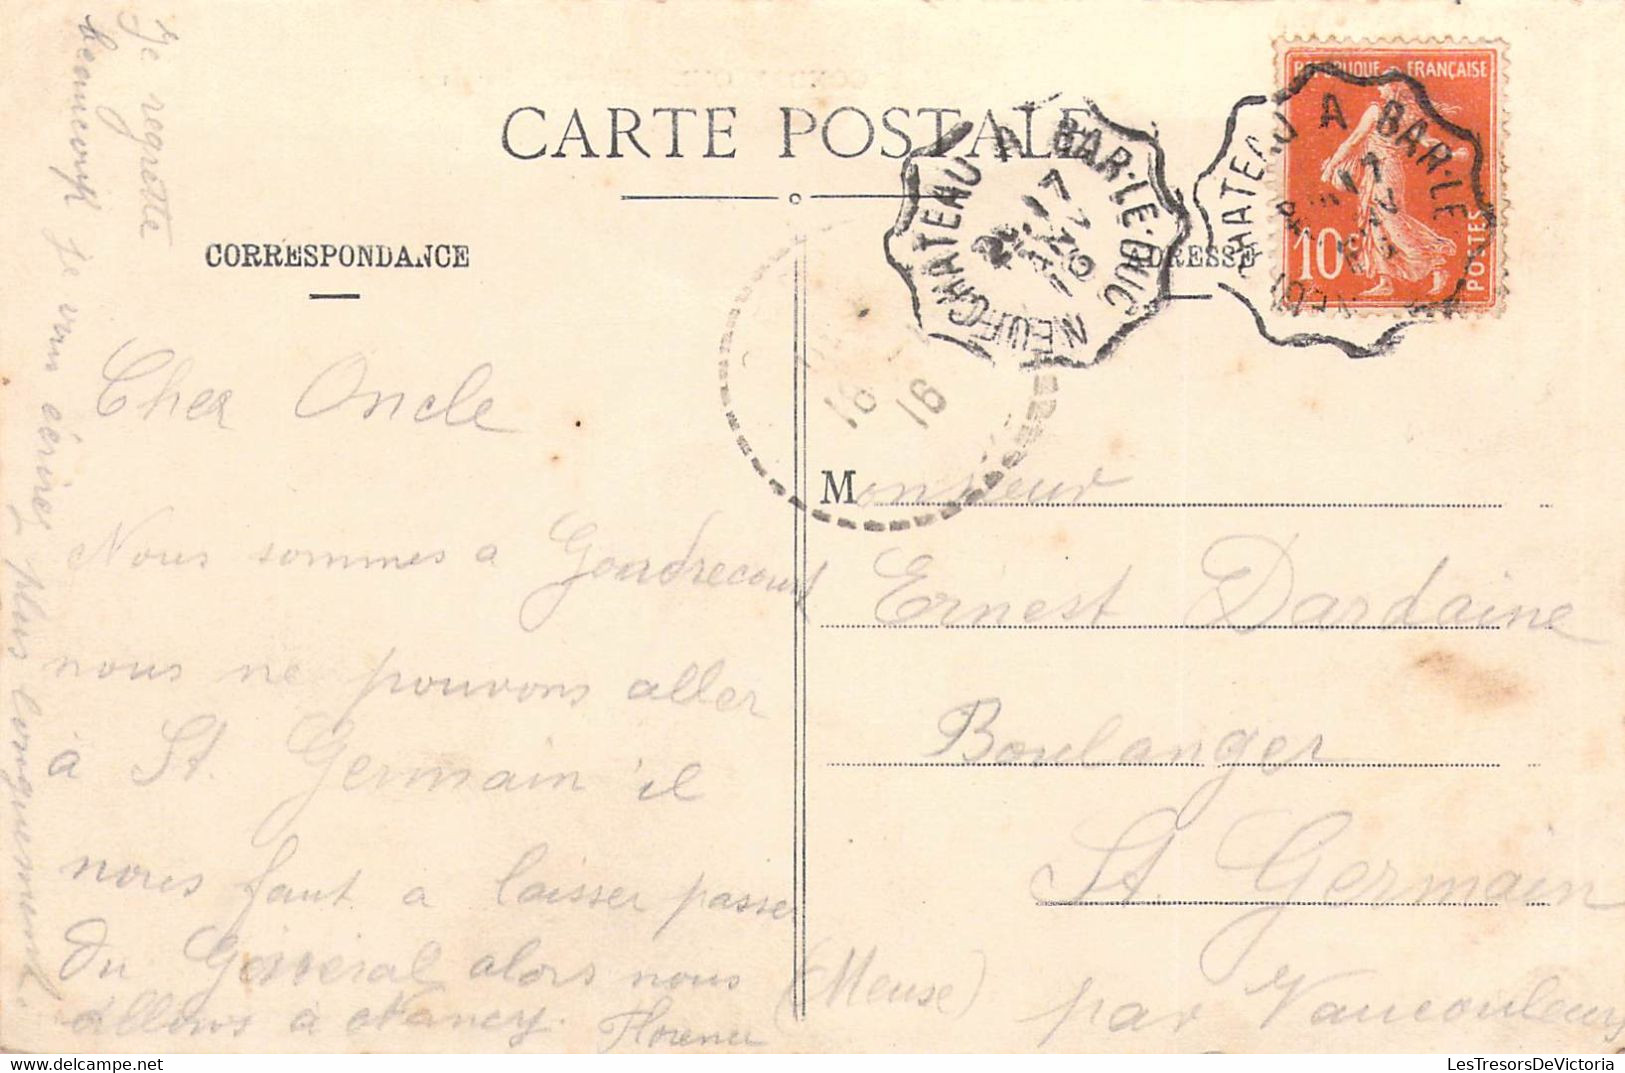 CARTE POSTALE
CORRESPONDANCE
ADRESSE
RÉPUBLIQUE FRANÇAISE
10c
POSTES
NEUFCHATEAU A BAR-LE-DUC
CHATEAU A BAR-LE
18
16
Je regrette
beaucoup je vous écrirez plus longuement.
Cher Oncle
Nous sommes a Gondrecourt
nous ne pouvons aller
à St. Germain il
nous faut a laisser passer
du Général alors nous
allons à Nancy.
Florence
Monsieur
Ernest Dardaine
Boulanger
St. Germain
par Vaucouleurs
(Meuse)
LesTresorsDeVictoria.com